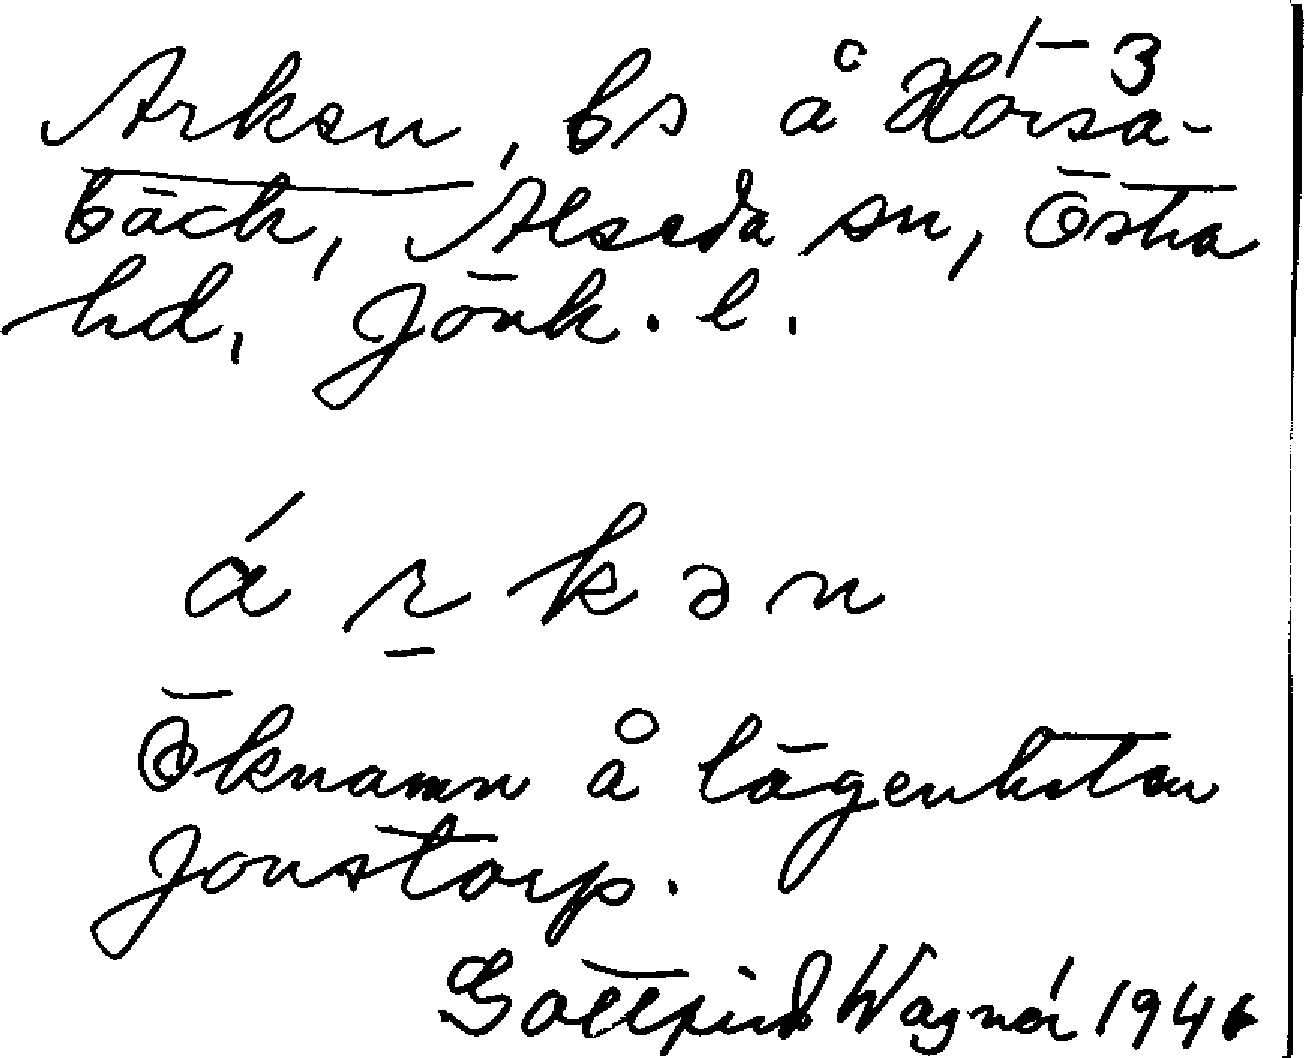 Arken, bs å Horsa- 1–3
bäck, Alseda sn, Östra
hd, Jönk. l.
á r̲ k ə n
Öknamn å lägenheten
Jonstorp.
Gottfrid Wagnér 1946